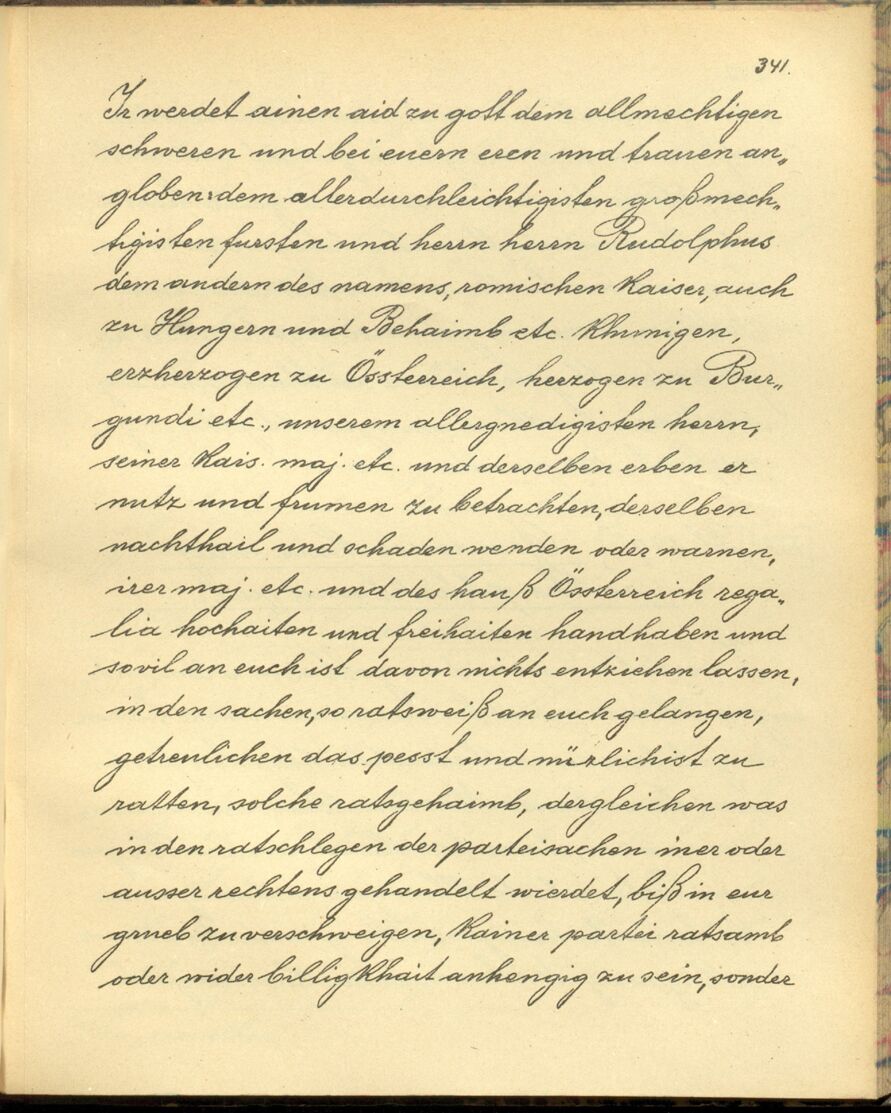 341.
Ir werdet ainen aid zu gott dem allmechtigen
schweren und bei euern eren und trauen an„
globen: dem allerdurchleichtigisten großmech„
tigisten fursten und herrn herrn Rudolphus
dem andern des namens, romischen Kaiser, auch
zu Hungern und Behaimb etc. Khunigen,
erzherzogen zu Össterreich, herzogen zu Bur„
gundi etc., unserem allergnedigisten herrn,
seiner Kais. maj. etc. und derselben erben er
nutz und frumen zu betrachten, derselben
nachthail und schaden wenden oder warnen,
irer maj. etc. und des hauß Össterreich rega„
lia hochaiten und freihaiten handhaben und
sovil an euch ist davon nichts entziehen lassen,
in den sachen, so ratsweiß an euch gelangen,
getreulichen das pesst und nüzlichist zu
ratten, solche ratsgehaimb, dergleichen was
in den ratschlegen der parteisachen iner oder
ausser rechtens gehandelt wierdet, biß in eur
grueb zu verschweigen, Kainer partei ratsamb
oder wider billigKhait anhengig zu sein, sonder